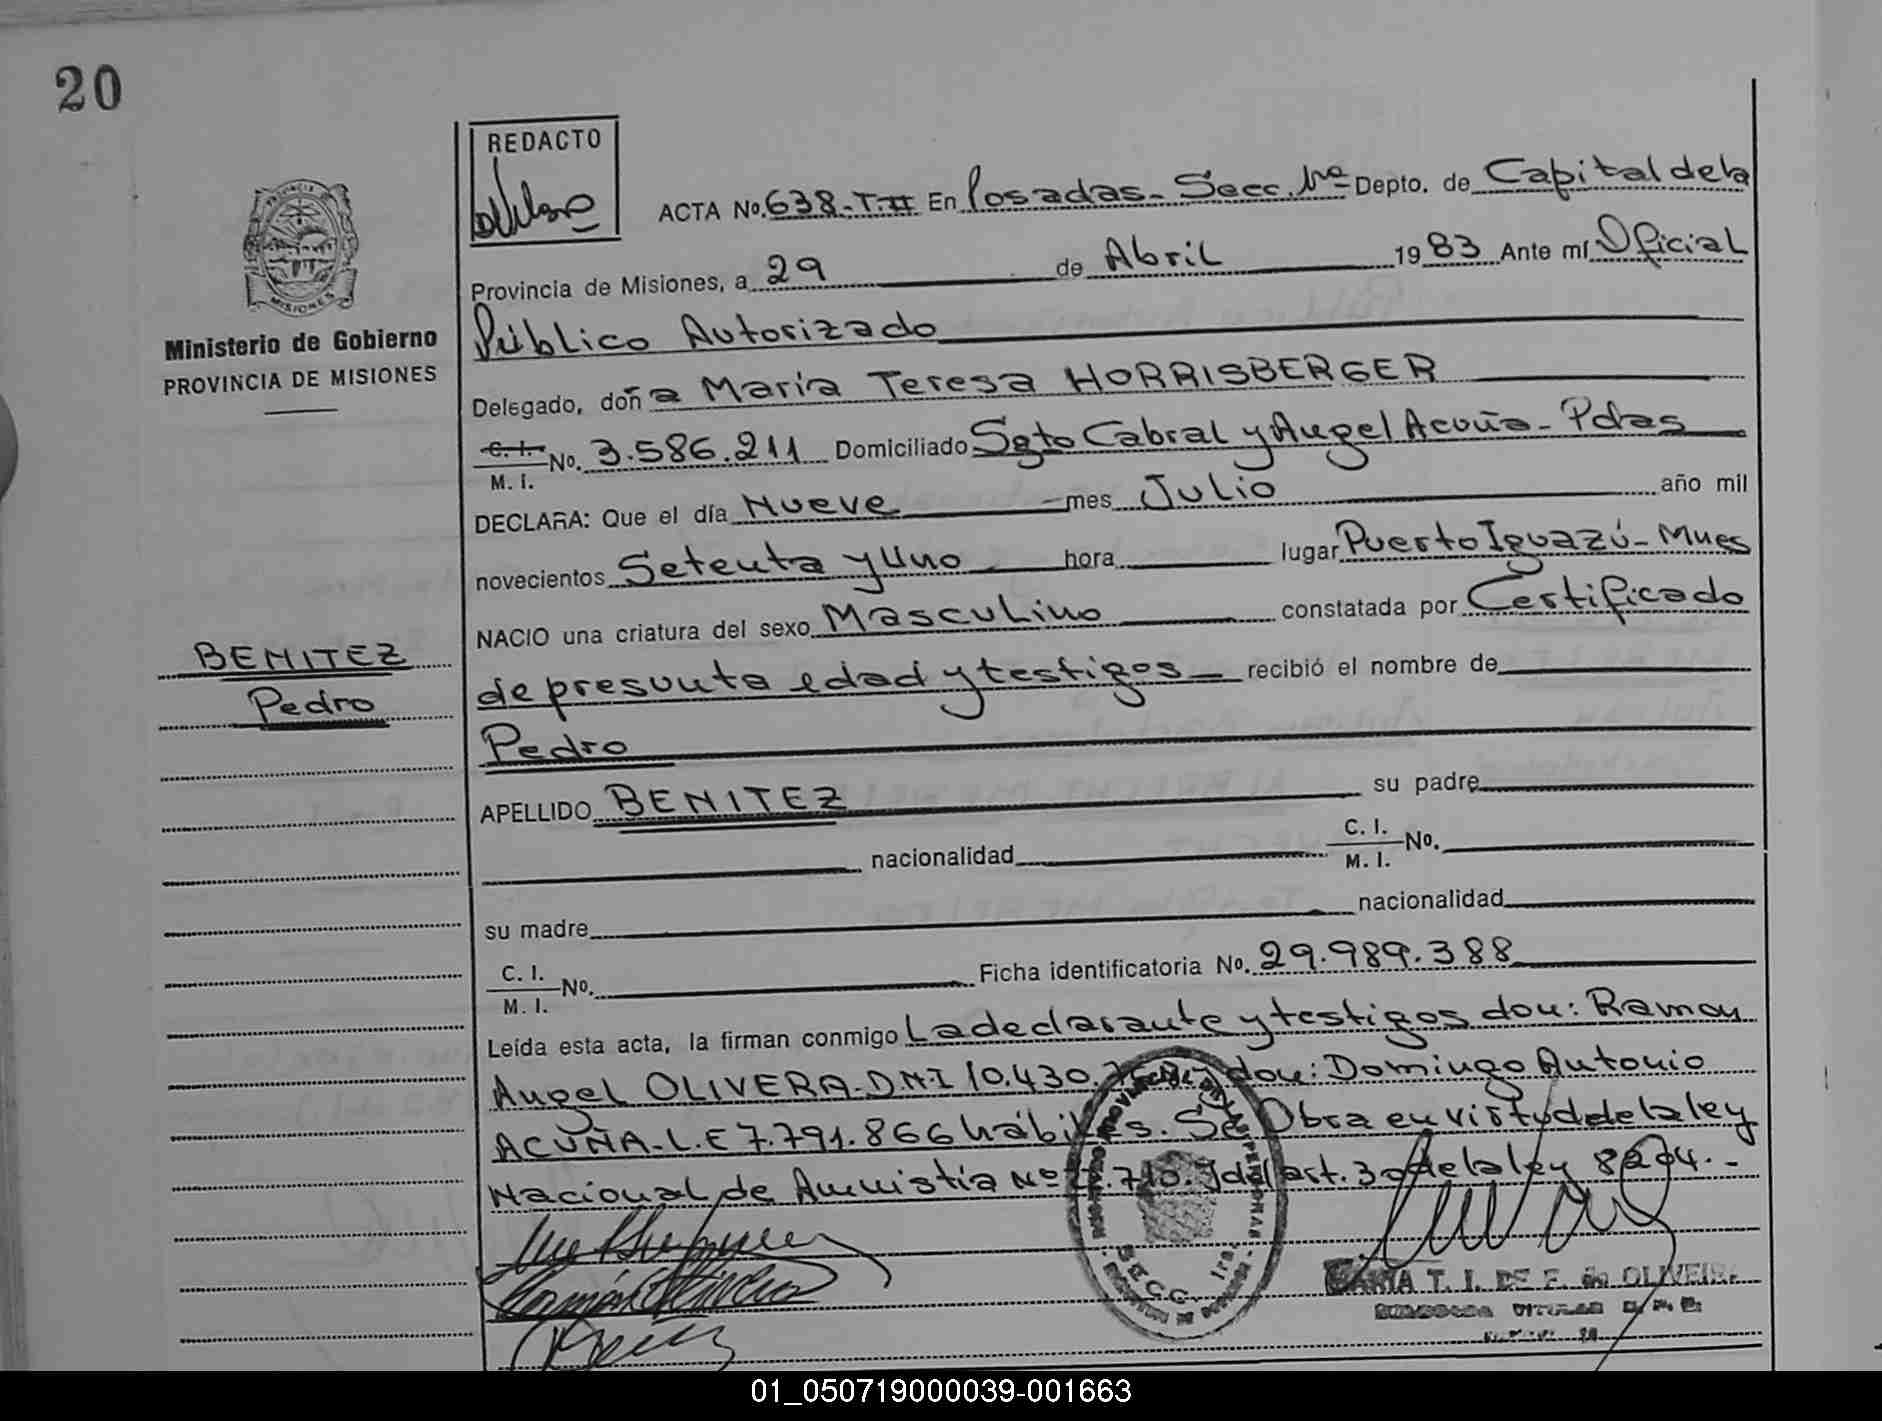 20
REDACTO
ACTA No. 638-T.II En Posadas- Secc. 1ra Depto. de Capital de la
Provincia de Misiones, a 29 de Abril 1983 Ante mí Oficial
Ministerio de Gobierno
PROVINCIA DE MISIONES
Público Autorizado
Delegado, doña María Teresa HORRISBERGER
C. I. M. I. No. 3.586.211 Domiciliado Sgto Cabral y Angel Acuña- Pdas
DECLARA: Que el día Nueve mes Julio año mil
novecientos Setenta y Uno hora lugar Puerto Iguazú- Mnes
NACIO una criatura del sexo Masculino constatada por Certificado
BENITEZ
Pedro
de presunta edad y testigos recibió el nombre de
Pedro
APELLIDO BENITEZ su padre
nacionalidad C. I. M. I. No.
su madre nacionalidad
C. I. M. I. No. Ficha identificatoria No. 29.989.388
Leída esta acta, la firman conmigo La declarante y testigos don: Ramon
Angel OLIVERA-D.N.I 10.430. don: Domingo Antonio
ACUÑA-L.E 7.791.866 hábiles. Se Obra en virtud de la ley
Nacional de Amnistía No del art. 30 de la ley 8204.-
SECC. 1ra.
MARIA T. I. DE F. de OLIVEIRA
01_050719000039-001663